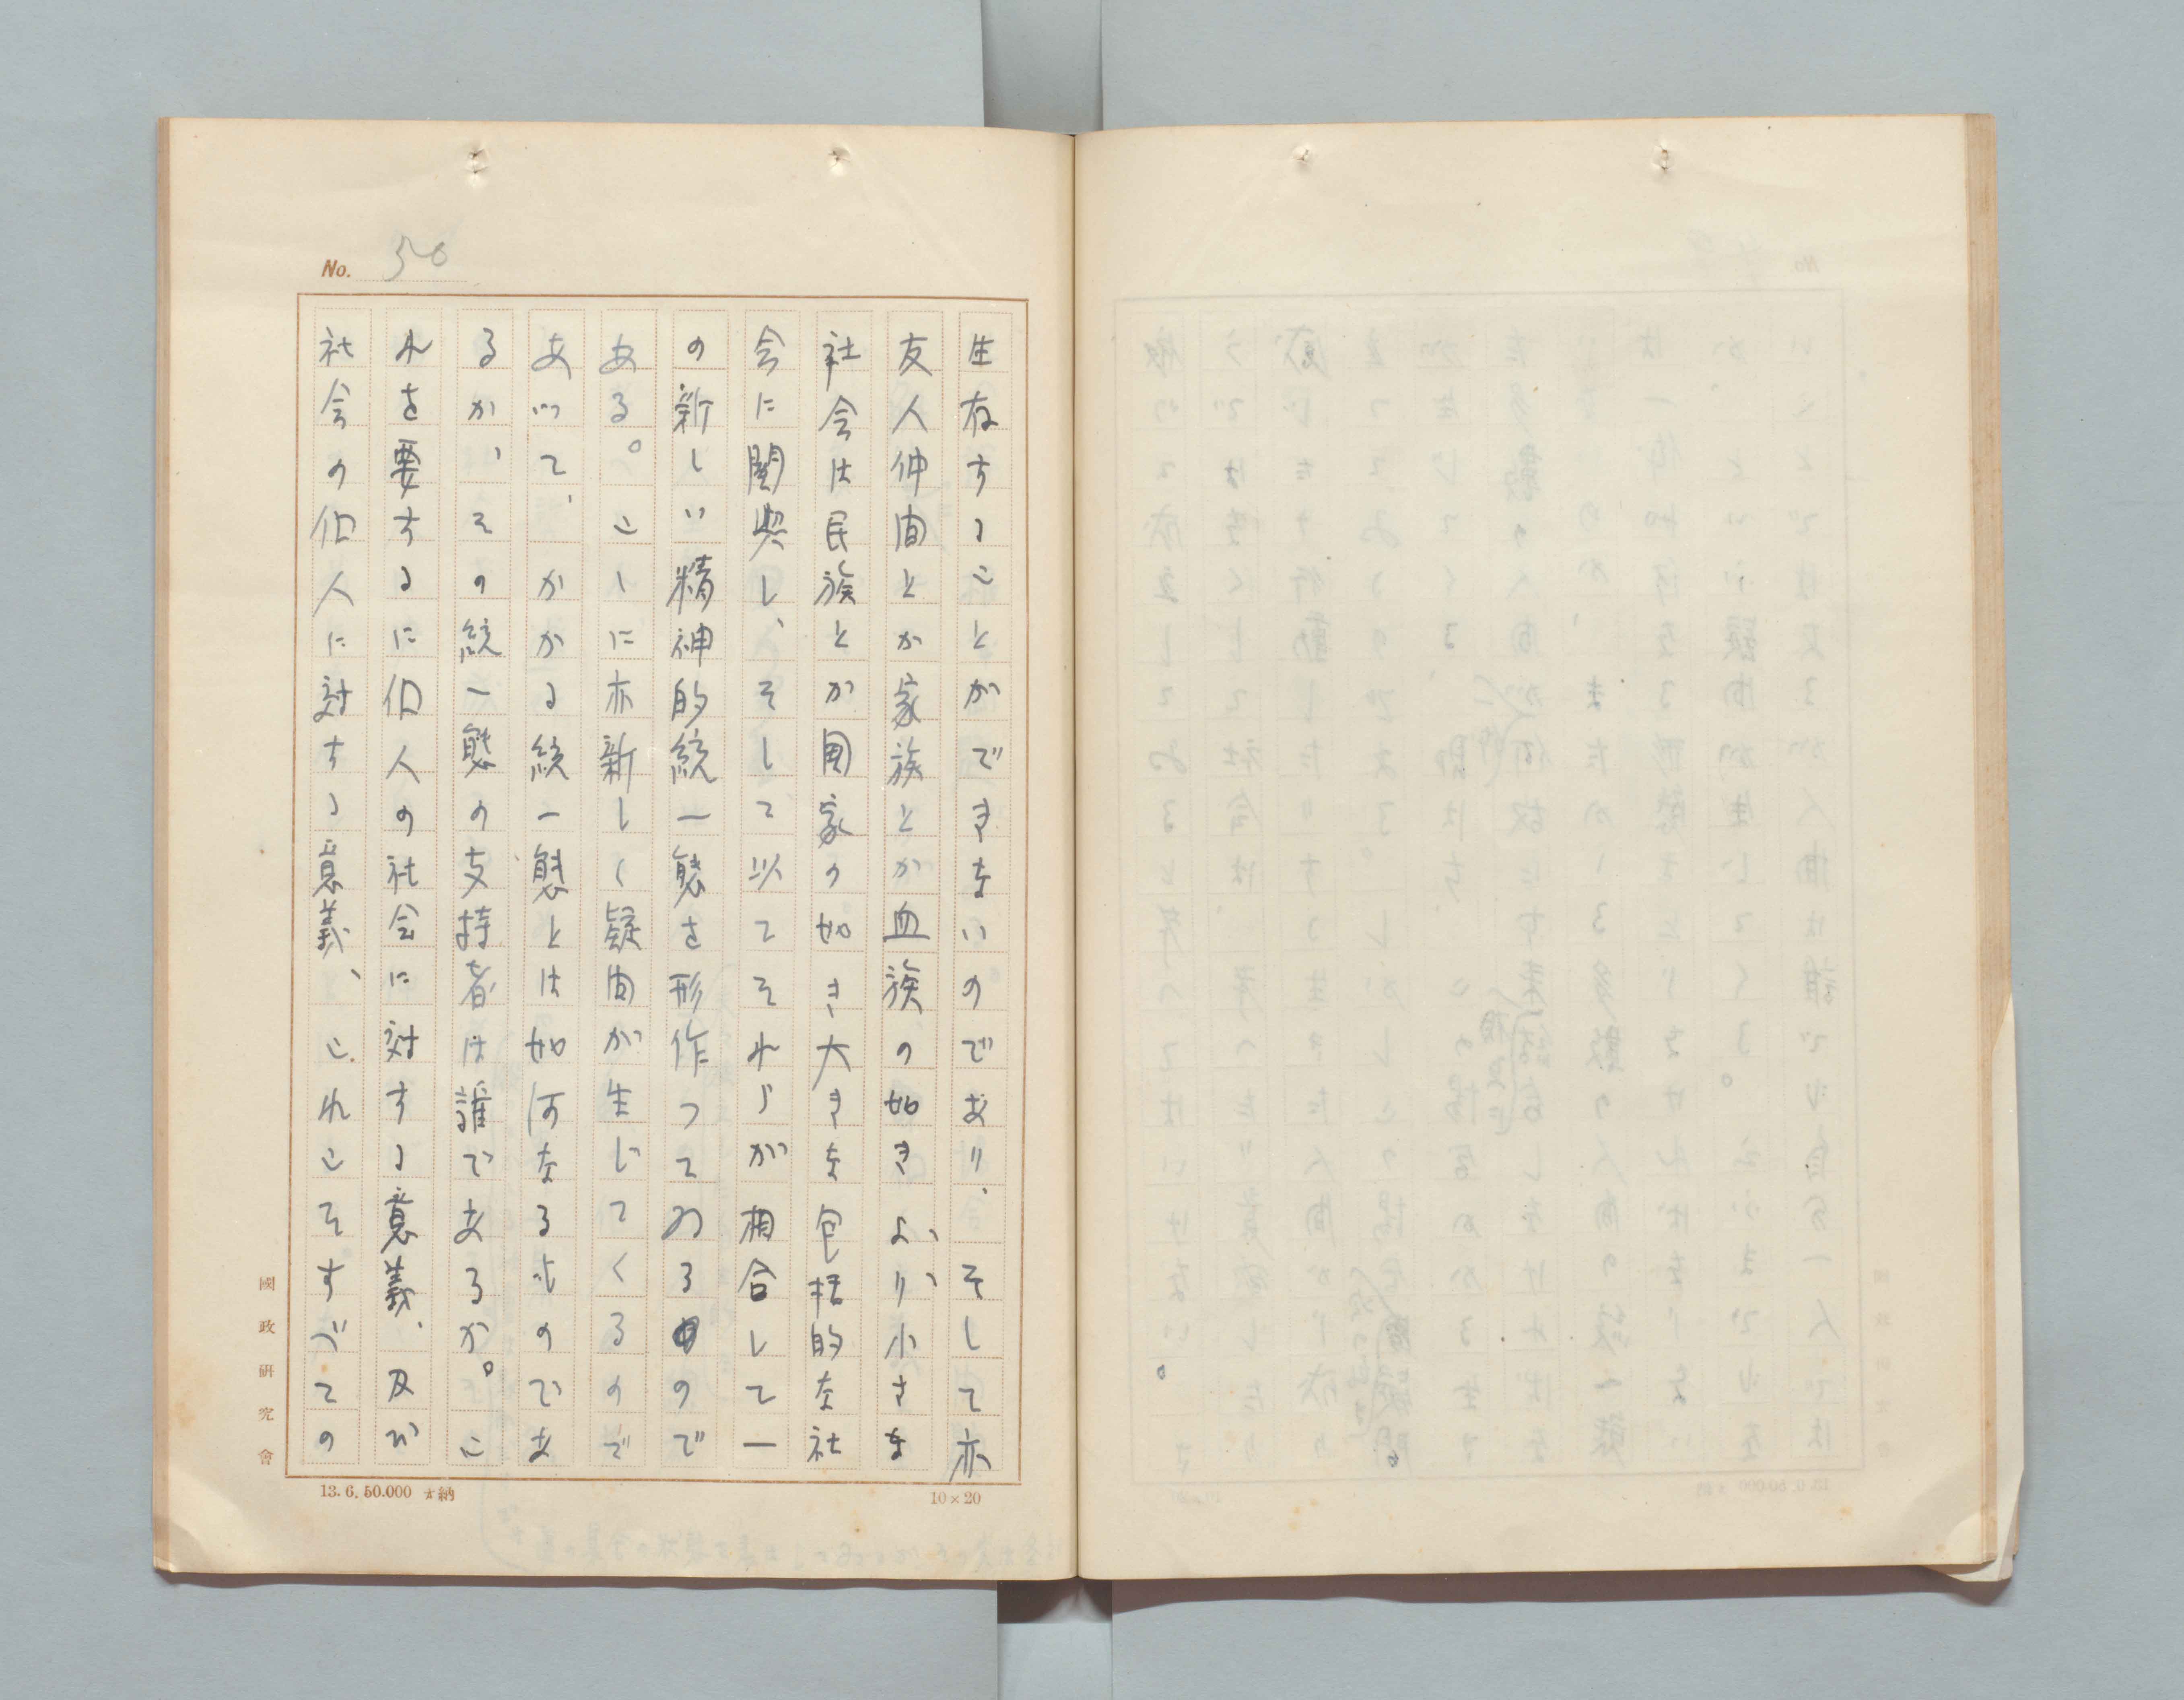 No. 50
生存することができないのであり、そして亦
友人仲間とか家族とか血族の如きより小さな
社会は民族とか国家の如き大きな包括的な社
会に関与し、そして以てそれらが相合して一
の新しい精神的統一態を形作つてゐるので
ある。こゝに亦新しく疑問が生じてくるので
あつて、かかる統一態とは如何なるものであ
るか、その統一態の支持者は誰であるか。こ
れを要するに個人の社会に対する意義、及び
社会の個人に対する意義、これこそすべての
國政研究會
13.6.50.000 納
10×20